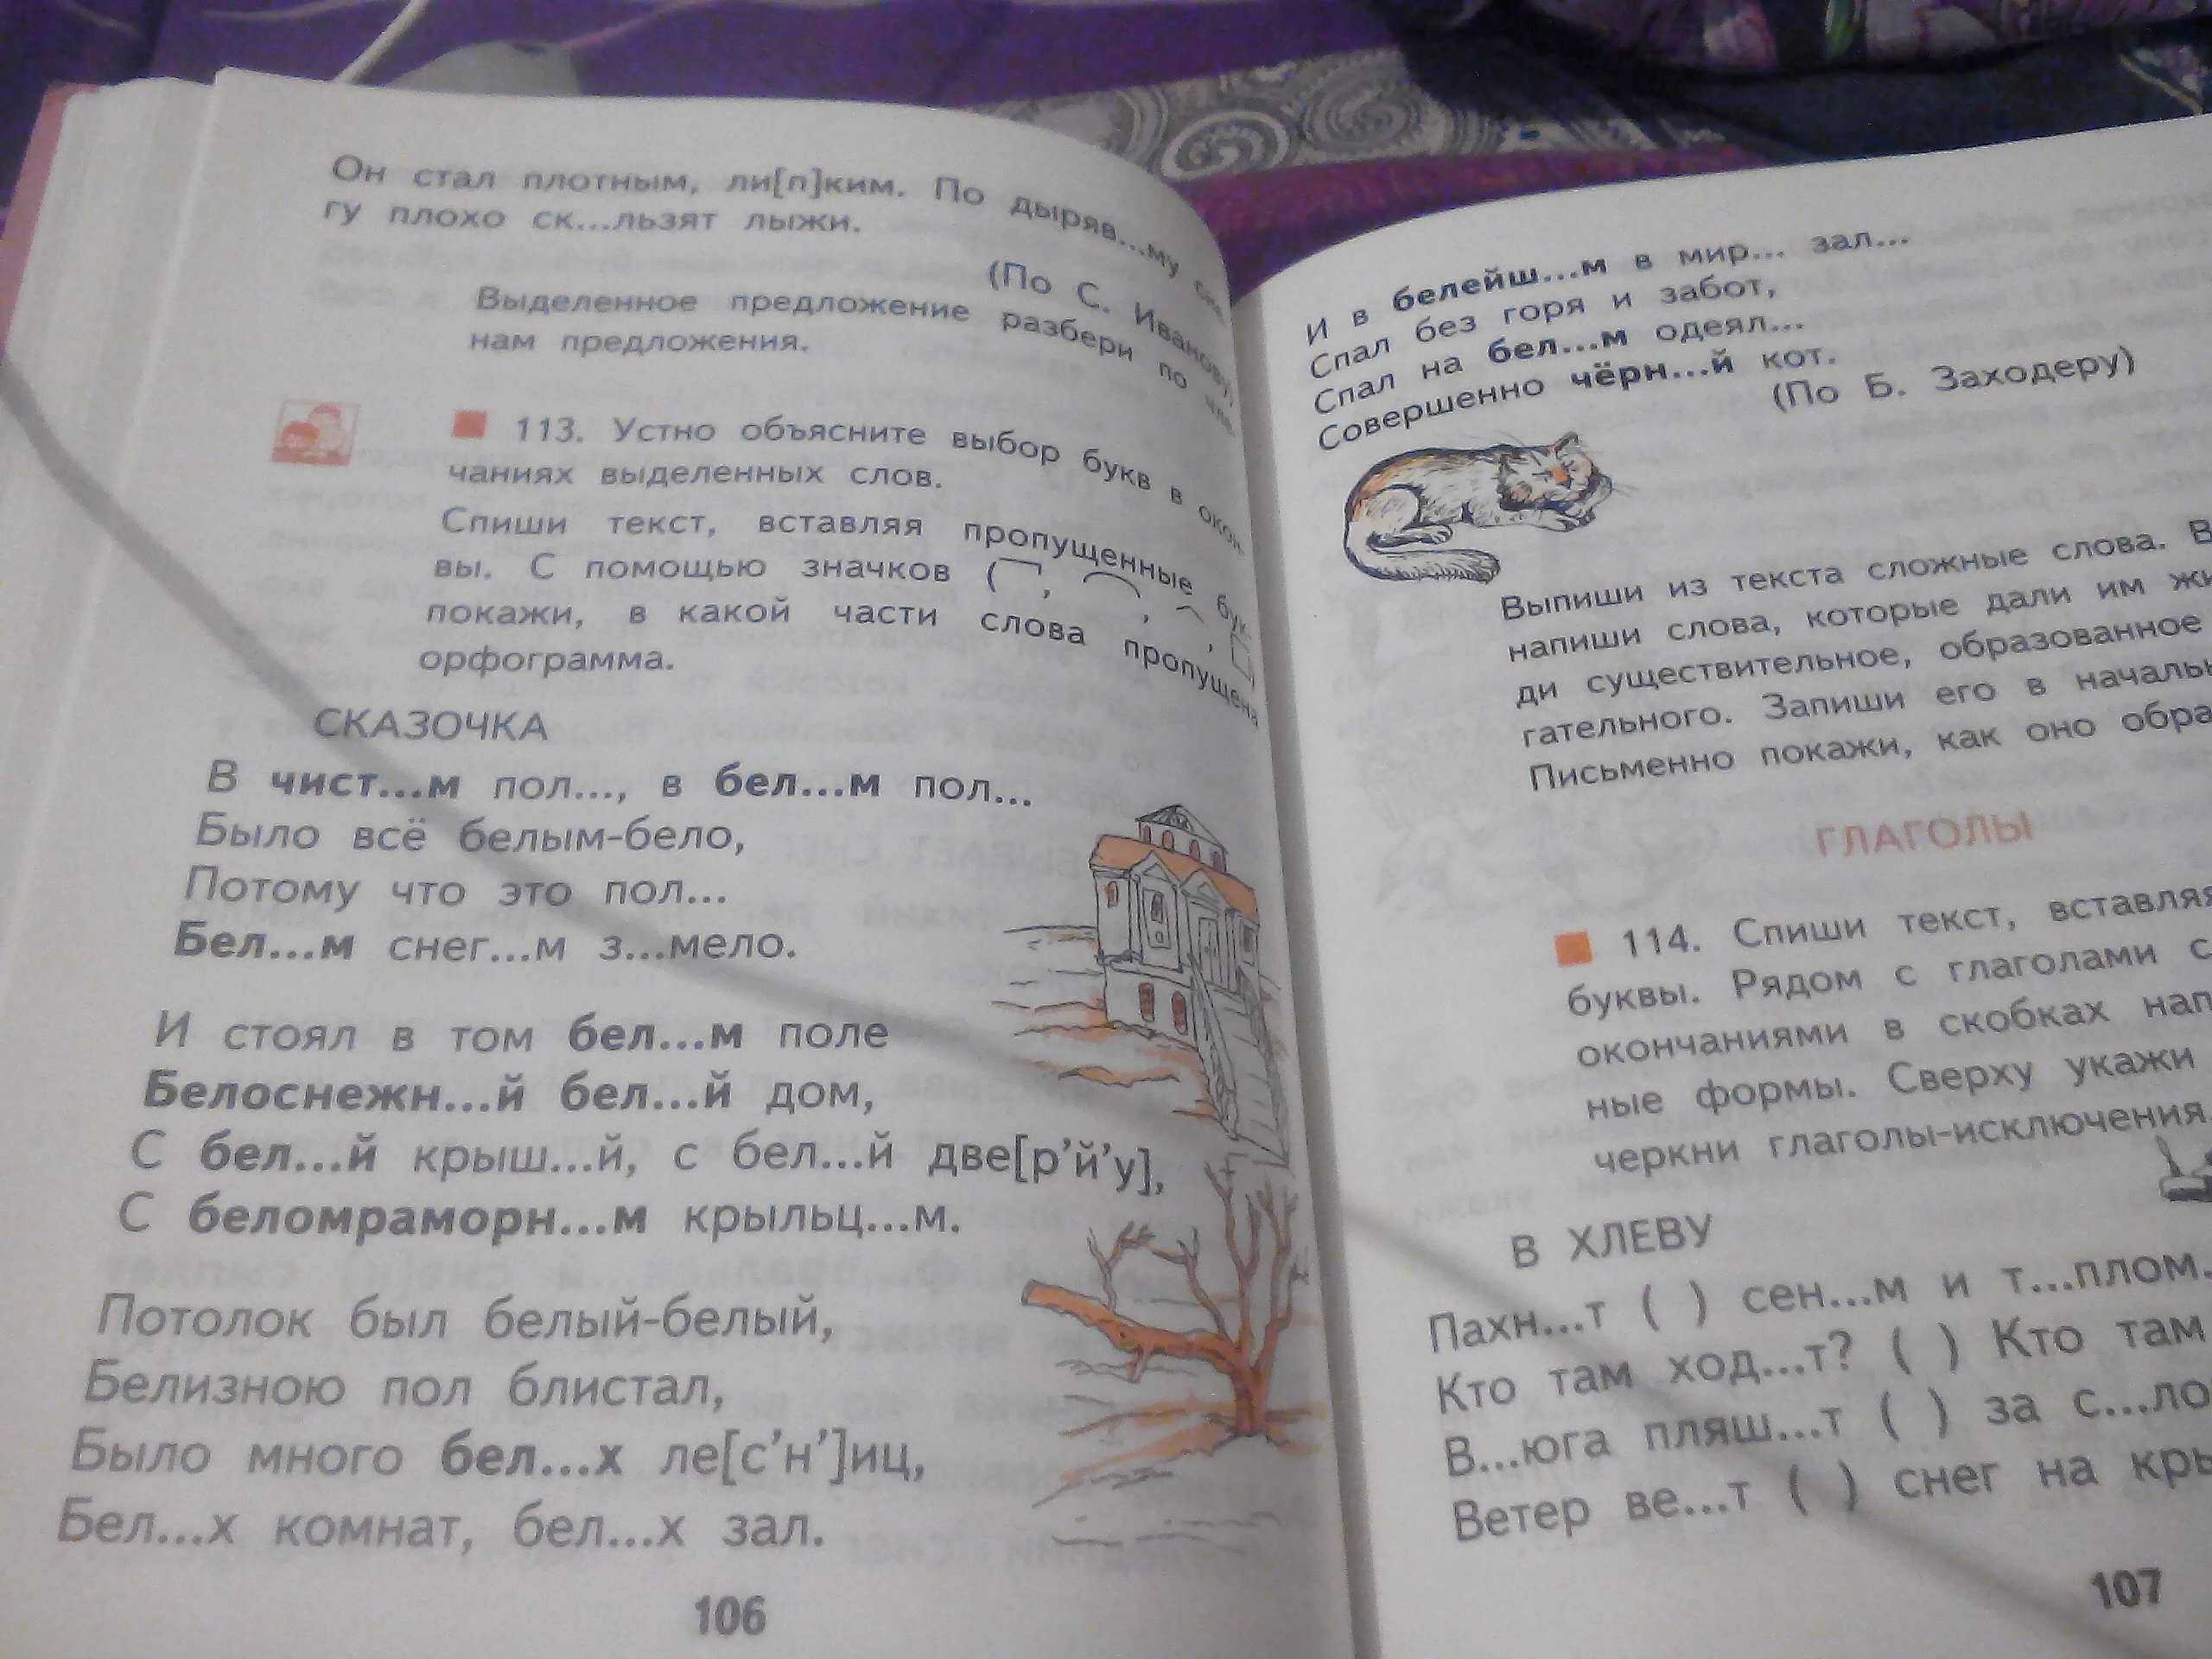 Он стал плотным, ли[п]ким. По дыряв...му сне-
гу плохо ск...льзят лыжи.
(По С. Иванову)
Выделенное предложение разбери по чле-
нам предложения.
113. Устно объясните выбор букв в окон-
чаниях выделенных слов.
Спиши текст, вставляя пропущенные бук-
вы. С помощью значков
покажи, в какой части слова пропущена
орфограмма.
СКАЗОЧКА
В чист...м пол..., в бел...м пол...
Было всё белым-бело,
Потому что это пол...
Бел...м снег...м з...мело.
И стоял в том бел...м поле
Белоснежн...й бел...й дом,
С бел...й крыш...й, с бел...й две[р’й’у],
С беломраморн...м крыльц...м.
Потолок был белый-белый,
Белизною пол блистал,
Было много бел...х ле[с’н’]иц,
Бел...х комнат, бел...х зал.
106
И в белейш...м в мир... зал...
Спал без горя и забот,
Спал на бел...м одеял...
Совершенно чёрн...й кот.
(По Б. Заходеру)
Выпиши из текста сложные слова. В
напиши слова, которые дали им жи
ди существительное, образованное
гательного. Запиши его в началь
Письменно покажи, как оно обра
ГЛАГОЛЫ
114. Спиши текст, вставляя
буквы. Рядом с глаголами с
окончаниями в скобках нап
ные формы. Сверху укажи
черкни глаголы-исключения
В ХЛЕВУ
Пахн...т ( ) сен...м и т...плом.
Кто там ход...т? ( ) Кто там
В...юга пляш...т ( ) за с...ло
Ветер ве...т ( ) снег на кры
107